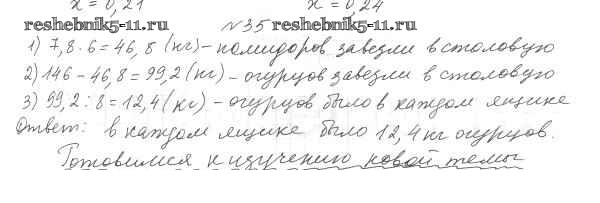 x = 0,21 x = 0,24
reshebnik5-11.ru №35 reshebnik5-11.ru
1) 7,8 · 6 = 46,8 (кг) – помидоров завезли в столовую
2) 146 – 46,8 = 99,2 (кг) – огурцов завезли в столовую
3) 99,2 : 8 = 12,4 (кг) – огурцов было в каждом ящике
Ответ: в каждом ящике было 12,4 кг огурцов.
Готовимся к изучению новой темы